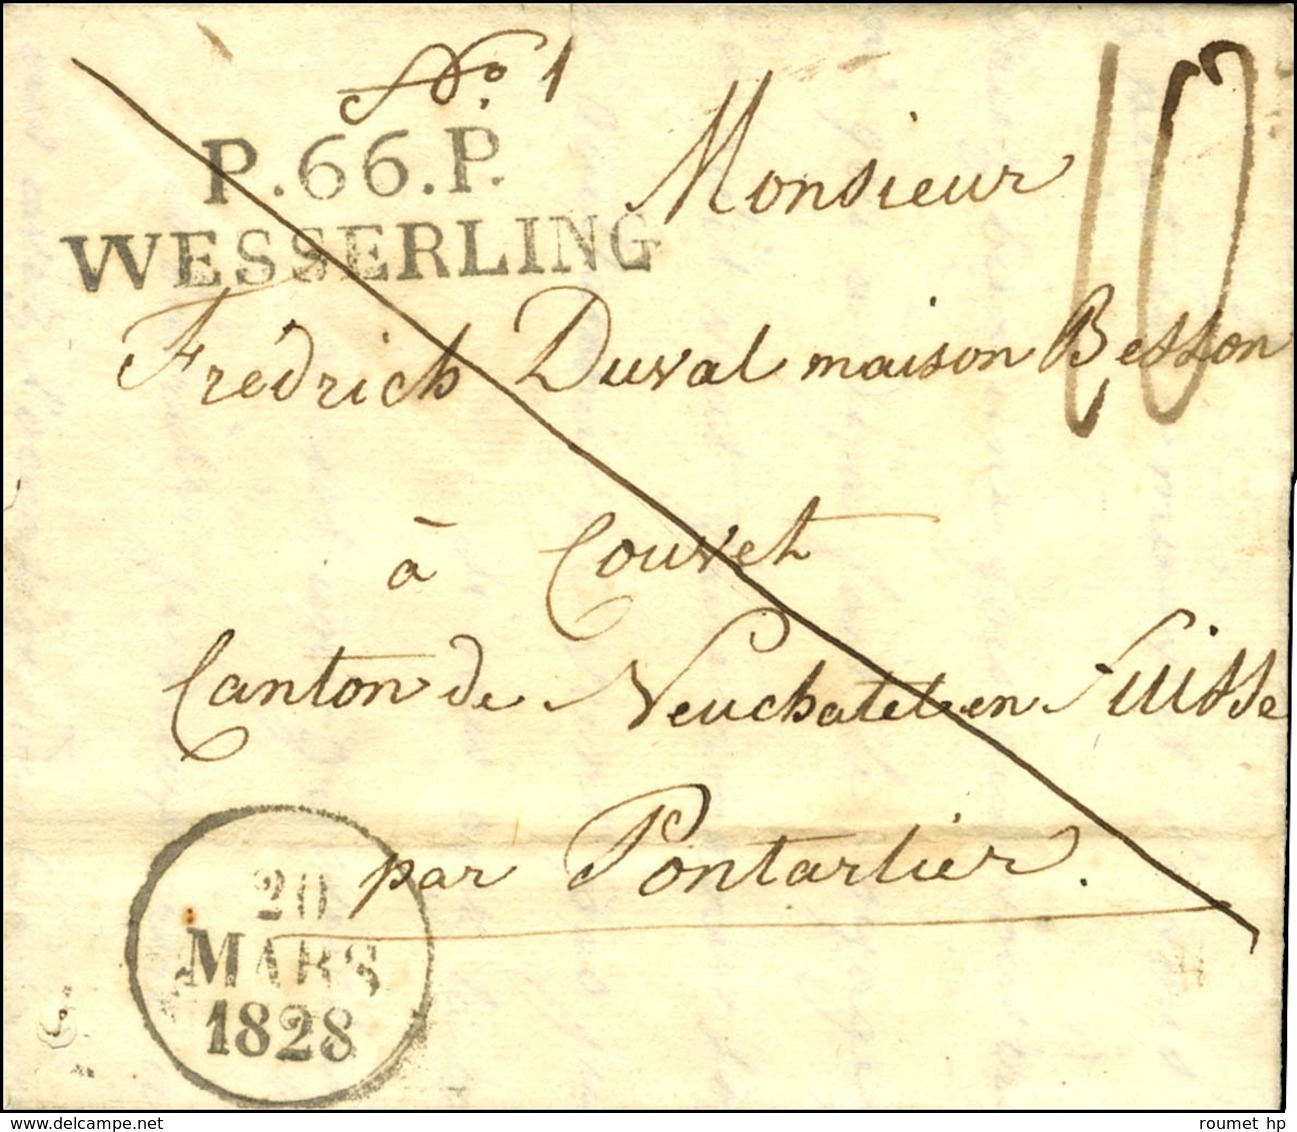 No. 1
P.66.P.
WESSERLING
10
Monsieur
Frédrich Duval maison Besson
à Couvet
Canton de Neuchatel en Suisse
par Pontarlier.
20
MARS
1828
www.delcampe.net
roumet hp